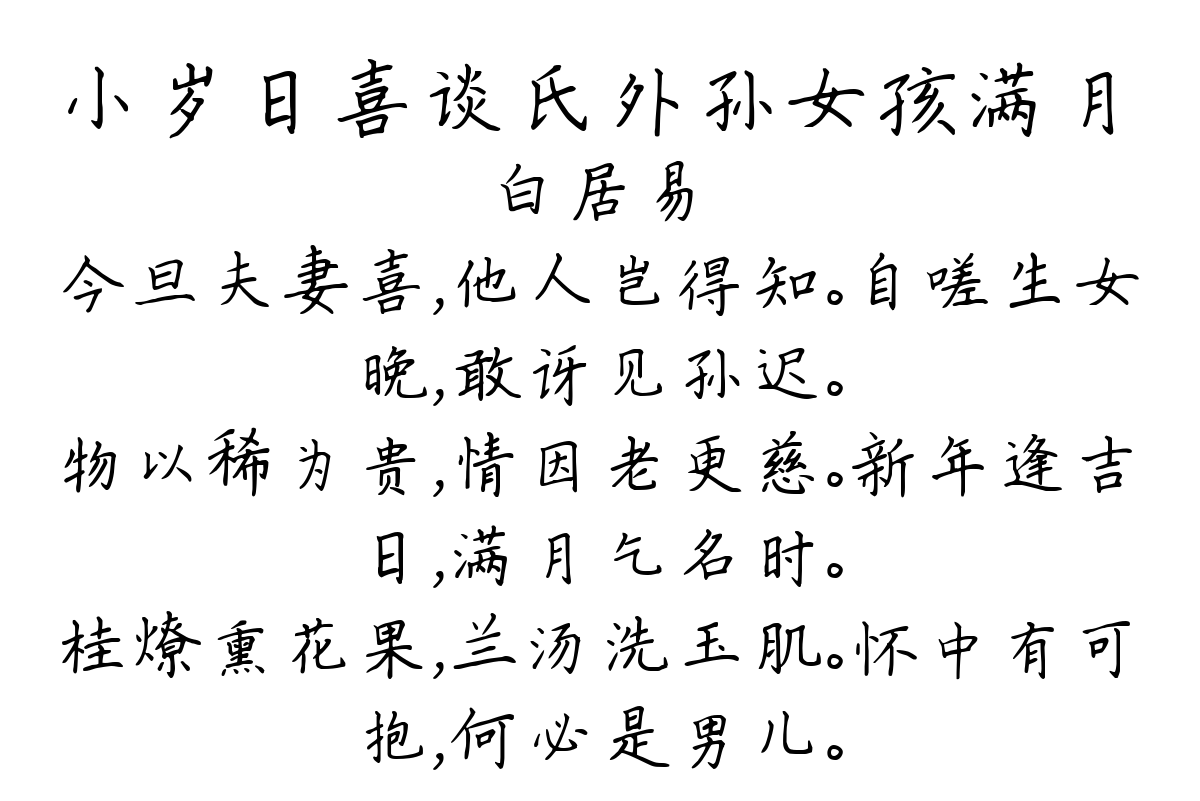 小岁日喜谈氏外孙女孩满月
白居易
今旦夫妻喜,他人岂得知。自嗟生女
晚,敢讶见孙迟。
物以稀为贵,情因老更慈。新年逢吉
日,满月乞名时。
桂燎熏花果,兰汤洗玉肌。怀中有可
抱,何必是男儿。